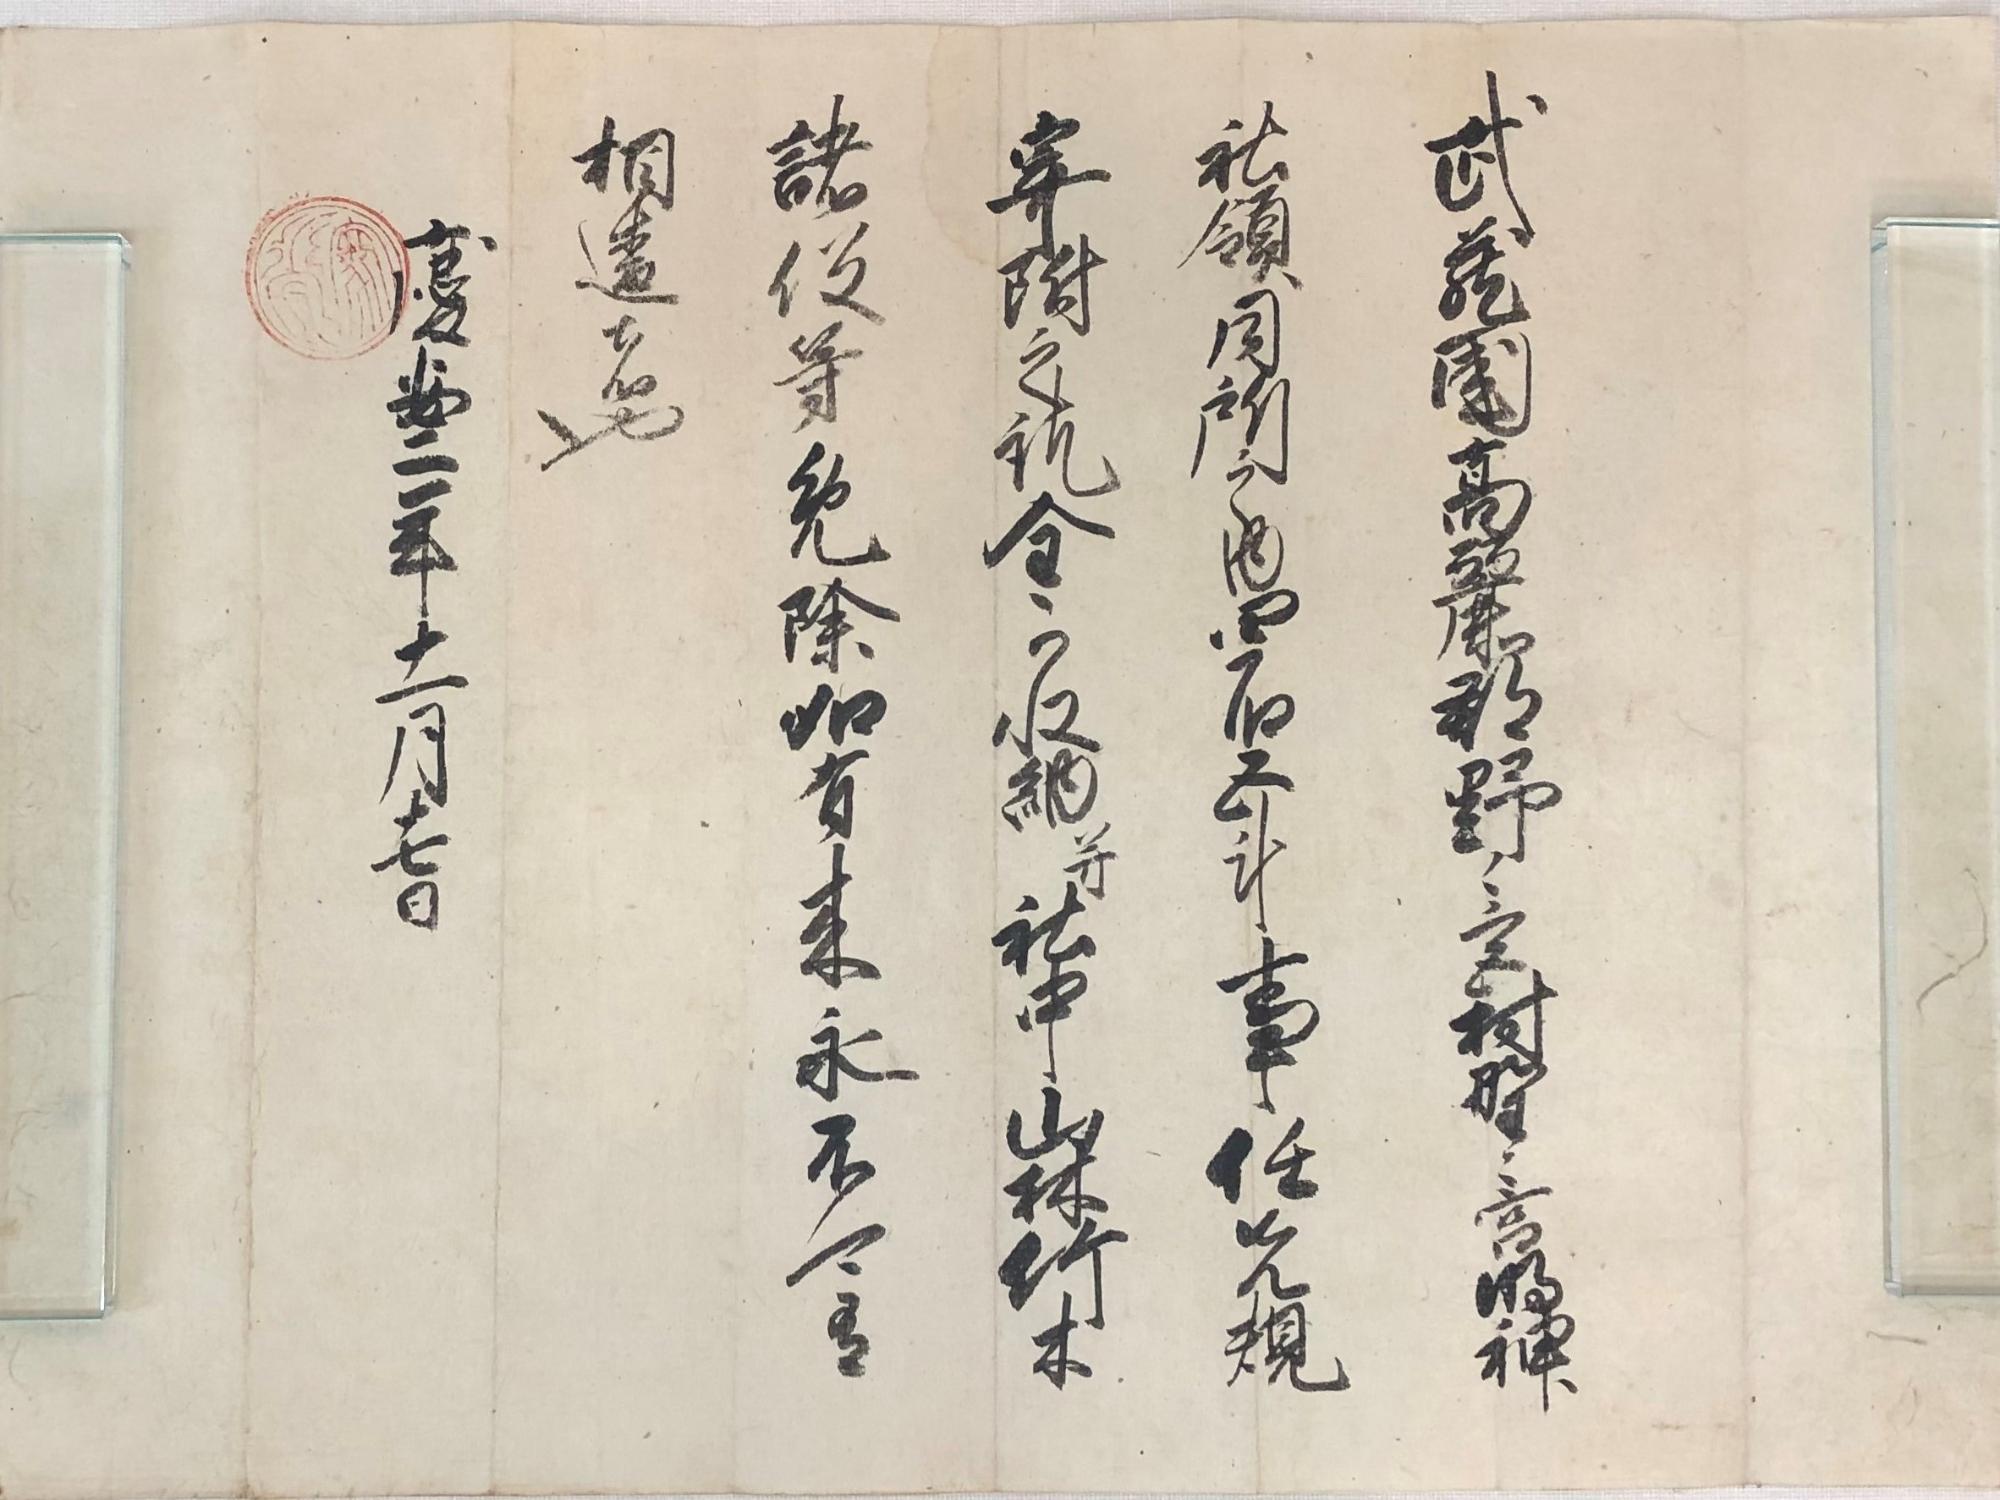 武蔵國高麗郡野々宮村野々宮明神
社領同所之内四石五斗事任先規
寄附之訖全可収納并社中山林竹木
諸役等免除如有来永不可有
相違者也
慶安二年十一月十七日